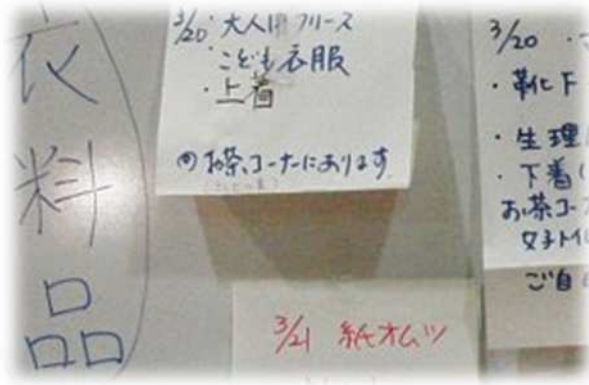 衣料品
3/20・大人用フリース
・こども衣服
・上着
お茶コーナーにあります
3/20
・靴下
・生理
・下着
お茶コー
女子トイ
ご自
3/21 紙オムツ